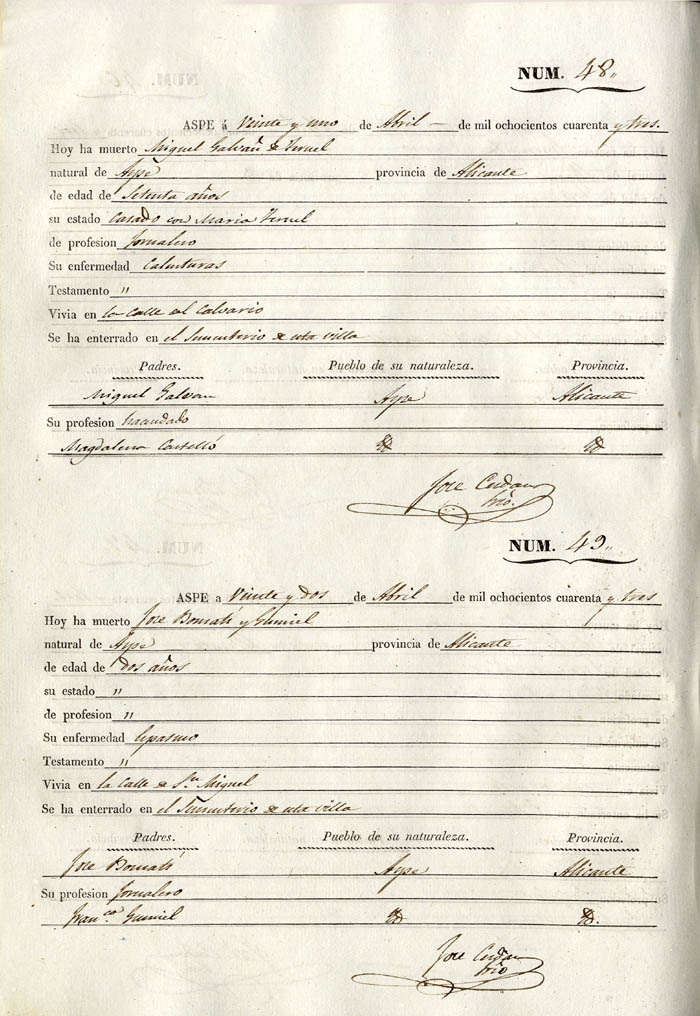 NUM. 48„
ASPE á Veinte y uno de Abril de mil ochocientos cuarenta y tres.
Hoy ha muerto Miguel Galvañ de Teruel
natural de Aspe provincia de Alicante
de edad de Setenta años
su estado Casado con Maria Teruel
de profesion Jornalero
Su enfermedad Calenturas
Testamento „
Vivia en la Calle del Calvario
Se ha enterrado en el Sementerio de esta villa
Padres. Pueblo de su naturaleza. Provincia.
Miguel Galvan Aspe Alicante
Su profesion hacendado
Magdalena Castelló Yd Yd
Jose Cerdan
Srio.
NUM. 49„
ASPE a Veinte y dos de Abril de mil ochocientos cuarenta y tres
Hoy ha muerto Jose Bomati y Gumiel
natural de Aspe provincia de Alicante
de edad de dos años
su estado „
de profesion „
Su enfermedad Espasmo
Testamento „
Vivia en la Calle de Sn Miguel
Se ha enterrado en el Sementerio de esta villa
Padres. Pueblo de su naturaleza. Provincia.
Jose Bomati Aspe Alicante
Su profesion Jornalero
Franca. Gumiel Yd Yd.
Jose Cerdan
Srio